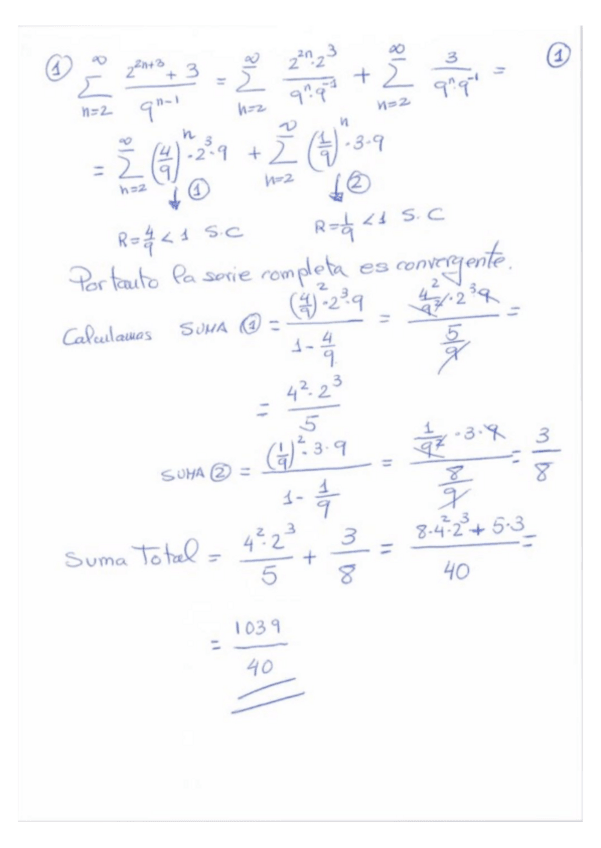 ① ∞∑n=2 (2^(2n+3) + 3)/(9^(n-1)) = ∞∑n=2 (2^(2n)·2^3)/(9^n·9^-1) + ∞∑n=2 3/(9^n·9^-1) = ①
= ∞∑n=2 (4/9)^n·2^3·9 + ∞∑n=2 (1/9)^n·3·9
↓① ↓②
R=4/9 < 1 S.C R=1/9 < 1 S.C
Por tanto la serie completa es convergente.
Calculamos SUMA ① = ((4/9)^2·2^3·9)/(1-4/9) = (4^2/9^2·2^3·9)/(5/9) =
= (4^2·2^3)/5
SUMA ② = ((1/9)^2·3·9)/(1-1/9) = (1/9^2·3·9)/(8/9) = 3/8
Suma Total = (4^2·2^3)/5 + 3/8 = (8·4^2·2^3+5·3)/40 =
= 1039/40